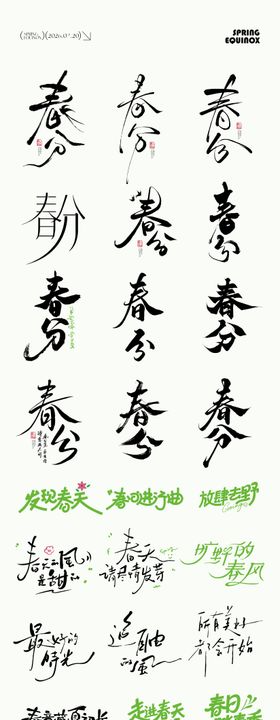 SPRING
EQUINOX
春分
春分
春分
春分
春分
春分
春分
春分
春分
春分
春分
春分
发现春天
春日进行曲
放肆去野
春天的风
是甜的
春天
请尽情发芽
旷野的
春风
最好的
时光
追自由
的風
所有美好
都会开始
走进春天
春日